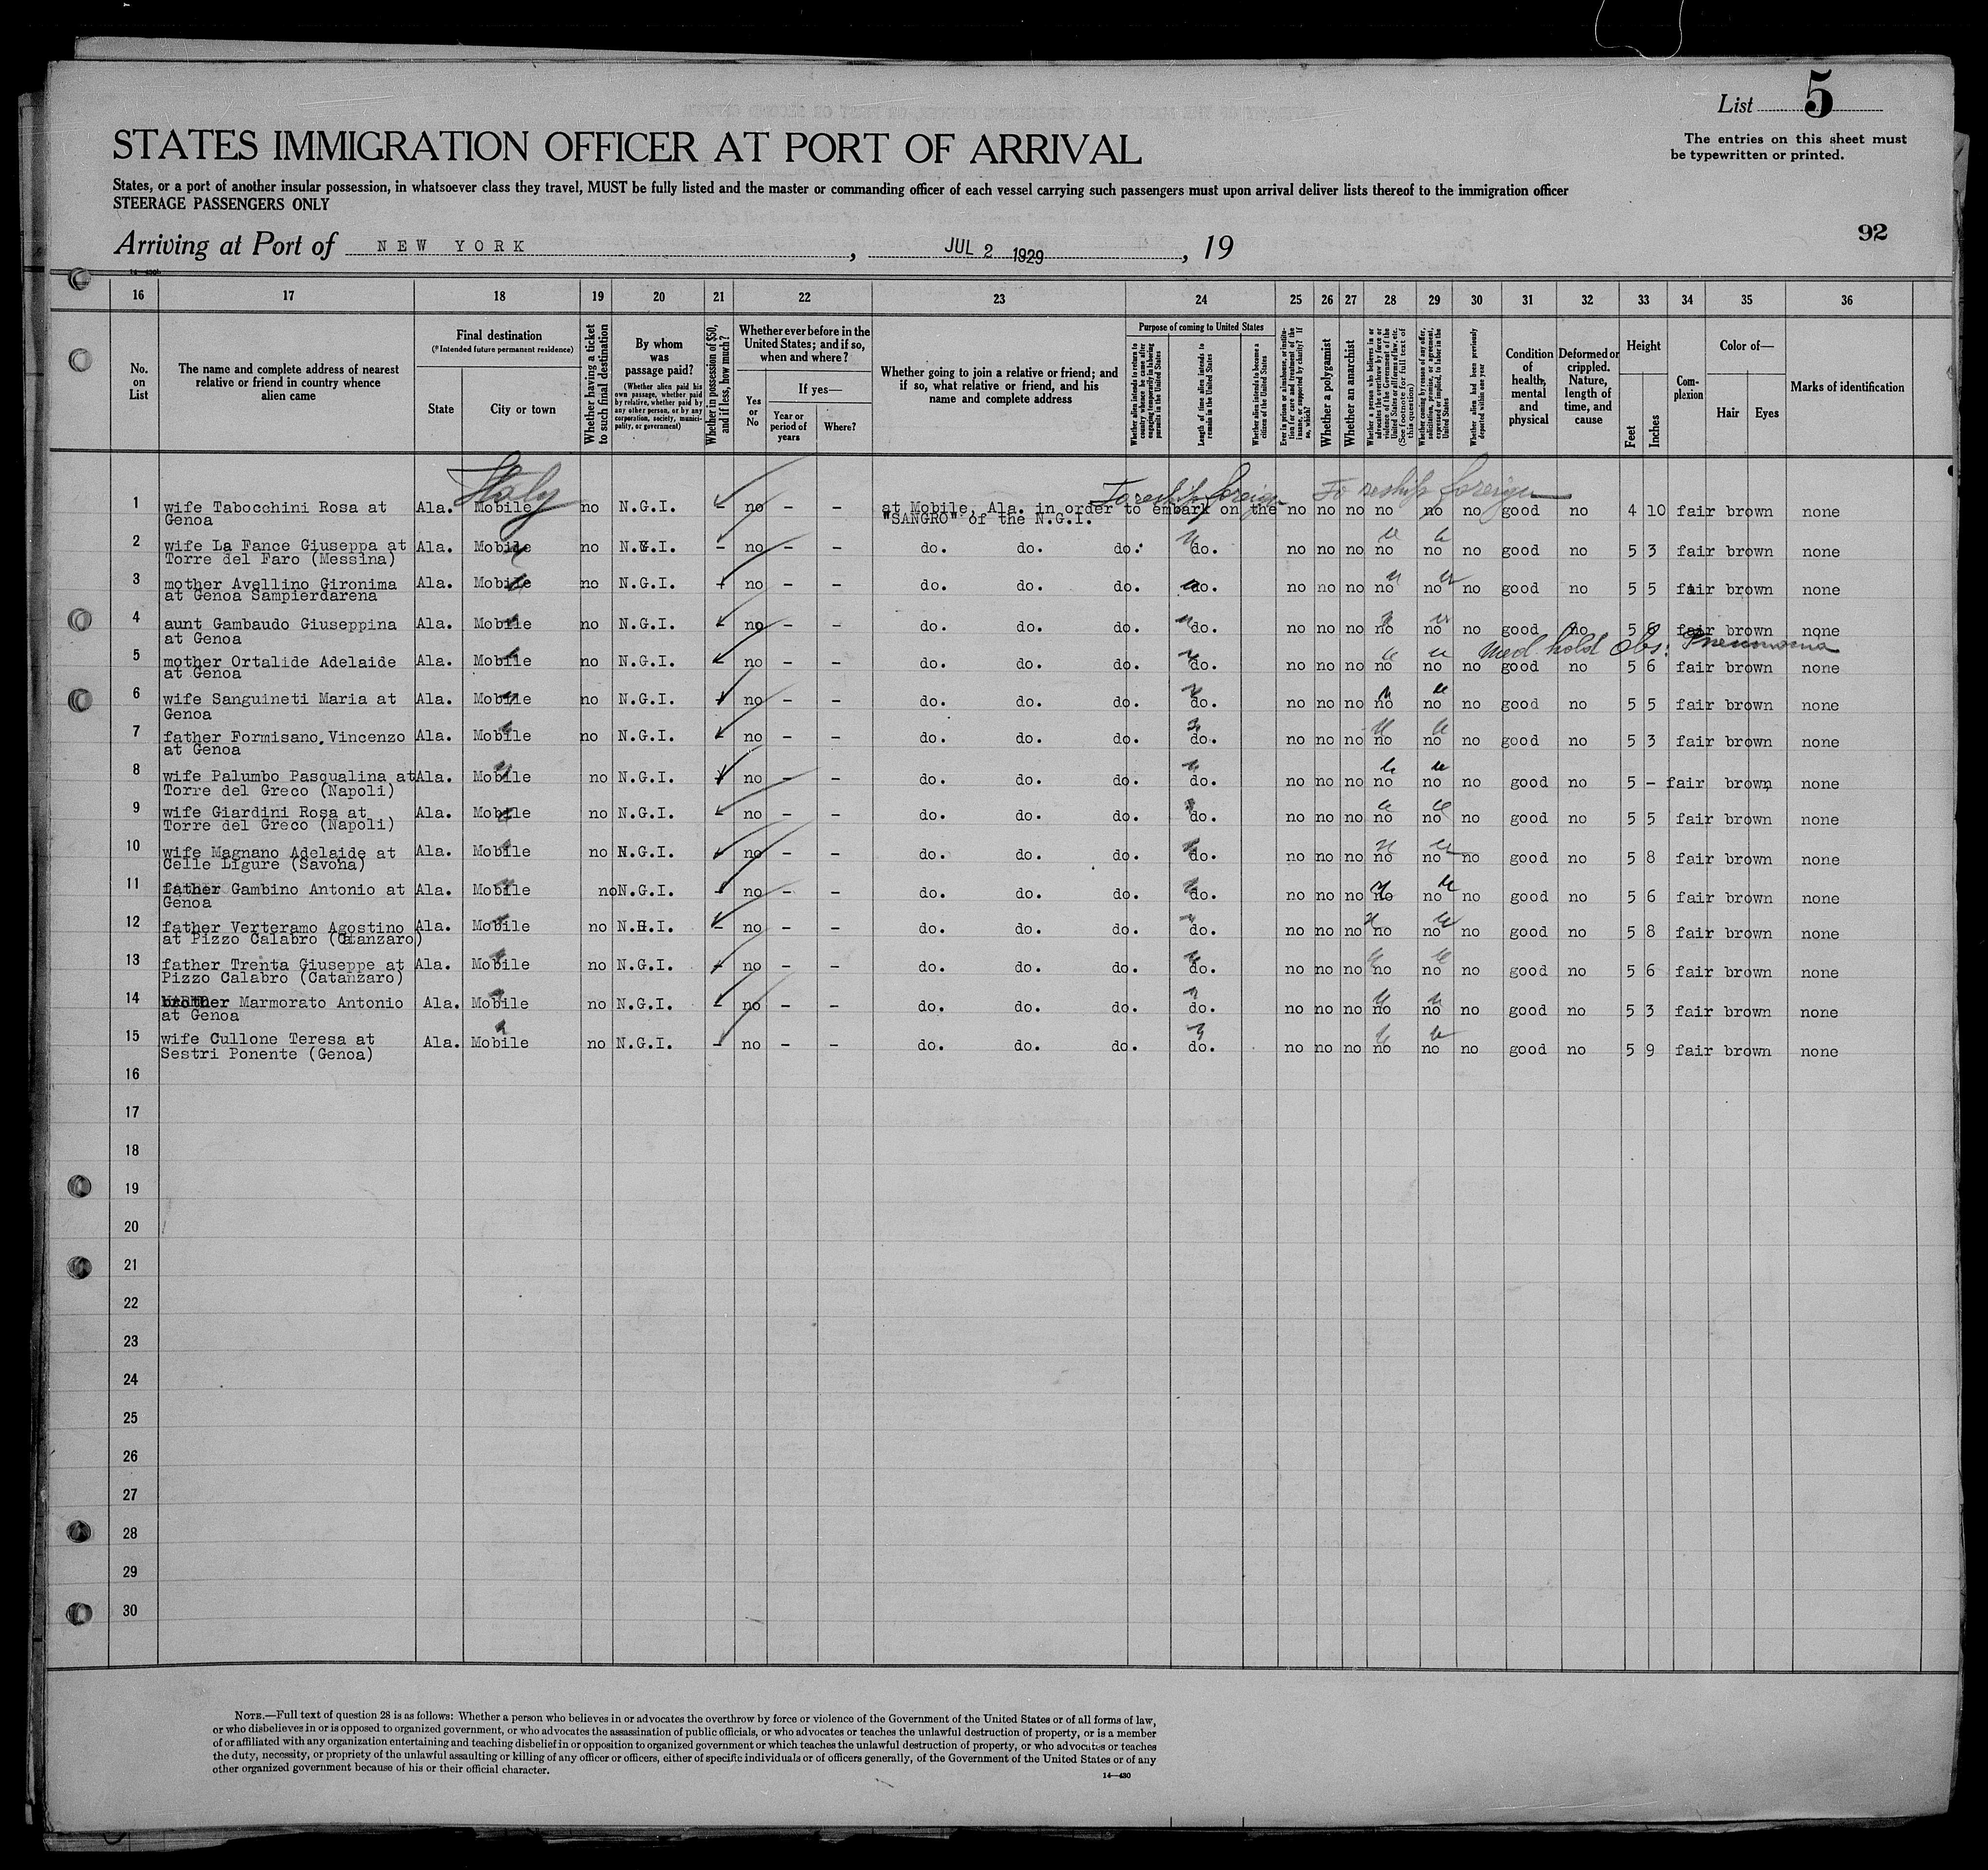 List 5
The entries on this sheet must
be typewritten or printed.
STATES IMMIGRATION OFFICER AT PORT OF ARRIVAL
States, or a port of another insular possession, in whatsoever class they travel, MUST be fully listed and the master or commanding officer of each vessel carrying such passengers must upon arrival deliver lists thereof to the immigration officer
STEERAGE PASSENGERS ONLY
92
Arriving at Port of NEW YORK, JUL 2 1929, 19
16 17 18 19 20 21 22 23 24 25 26 27 28 29 30 31 32 33 34 35 36
No. on List
The name and complete address of nearest relative or friend in country whence alien came
Final destination
(*Intended future permanent residence)
State
City or town
Whether having a ticket to such final destination
By whom was passage paid?
(Whether alien paid his own passage, whether paid by relative, whether paid by any other person, or by any corporation, society, municipality, or government)
Whether in possession of $50, and if less, how much?
Whether ever before in the United States; and if so, when and where?
Yes or No
If yes—
Year or period of years
Where?
Whether going to join a relative or friend; and if so, what relative or friend, and his name and complete address
Purpose of coming to United States
Whether alien intends to return to country whence he came after engaging temporarily in laboring pursuits in the United States
Length of time alien intends to remain in the United States
Whether alien intends to become a citizen of the United States
Ever in prison or almshouse, or institution for care and treatment of the insane, or supported by charity? If so, which?
Whether a polygamist
Whether an anarchist
Whether a person who believes in or advocates the overthrow by force or violence of the Government of the United States or all forms of law, etc. (See footnote for full text of this question)
Whether coming by reason of any offer, solicitation, promise, or agreement, expressed or implied, to labor in the United States
Whether alien had been previously deported within one year
Condition of health, mental and physical
Deformed or crippled. Nature, length of time, and cause
Height
Feet
Inches
Complexion
Color of—
Hair
Eyes
Marks of identification
Italy
To reship foreign To reship foreign
1 wife Tabocchini Rosa at Ala. Mobile no N.G.I. - no - - at Mobile, Ala. in order to embark on the no no no no no no good no 4 10 fair brown none
Genoa "SANGRO" of the N.G.I.
2 wife La Fance Giuseppa at Ala. Mobile no N.G.I. - no - - do. do. do. do. no no no no no no good no 5 3 fair brown none
Torre del Faro (Messina)
3 mother Avellino Gironima Ala. Mobile no N.G.I. - no - - do. do. do. do. no no no no no no good no 5 5 fair brown none
at Genoa Sampierdarena
4 aunt Gambaudo Giuseppina Ala. Mobile no N.G.I. - no - - do. do. do. do. no no no no no no good no 5 6 fair brown none
at Genoa
Med hold Obs: Pneumonia
5 mother Ortalide Adelaide Ala. Mobile no N.G.I. - no - - do. do. do. do. no no no no no no good no 5 6 fair brown none
at Genoa
6 wife Sanguineti Maria at Ala. Mobile no N.G.I. - no - - do. do. do. do. no no no no no no good no 5 5 fair brown none
Genoa
7 father Formisano Vincenzo Ala. Mobile no N.G.I. - no - - do. do. do. do. no no no no no no good no 5 3 fair brown none
at Genoa
8 wife Palumbo Pasqualina at Ala. Mobile no N.G.I. - no - - do. do. do. do. no no no no no no good no 5 - fair brown none
Torre del Greco (Napoli)
9 wife Giardini Rosa at Ala. Mobile no N.G.I. - no - - do. do. do. do. no no no no no no good no 5 5 fair brown none
Torre del Greco (Napoli)
10 wife Magnano Adelaide at Ala. Mobile no N.G.I. - no - - do. do. do. do. no no no no no no good no 5 8 fair brown none
Celle Ligure (Savona)
11 father Gambino Antonio at Ala. Mobile no N.G.I. - no - - do. do. do. do. no no no no no no good no 5 6 fair brown none
Genoa
12 father Verteramo Agostino Ala. Mobile no N.G.I. - no - - do. do. do. do. no no no no no no good no 5 8 fair brown none
at Pizzo Calabro (Catanzaro)
13 father Trenta Giuseppe at Ala. Mobile no N.G.I. - no - - do. do. do. do. no no no no no no good no 5 6 fair brown none
Pizzo Calabro (Catanzaro)
14 brother Marmorato Antonio Ala. Mobile no N.G.I. - no - - do. do. do. do. no no no no no no good no 5 3 fair brown none
at Genoa
15 wife Cullone Teresa at Ala. Mobile no N.G.I. - no - - do. do. do. do. no no no no no no good no 5 9 fair brown none
Sestri Ponente (Genoa)
16
17
18
19
20
21
22
23
24
25
26
27
28
29
30
NOTE.—Full text of question 28 is as follows: Whether a person who believes in or advocates the overthrow by force or violence of the Government of the United States or of all forms of law,
or who disbelieves in or is opposed to organized government, or who advocates the assassination of public officials, or who advocates or teaches the unlawful destruction of property, or is a member
of or affiliated with any organization entertaining and teaching disbelief in or opposition to organized government or which teaches the unlawful destruction of property, or who advocates or teaches
the duty, necessity, or propriety of the unlawful assaulting or killing of any officer or officers, either of specific individuals or of officers generally, of the Government of the United States or of any
other organized government because of his or their official character.
14—430